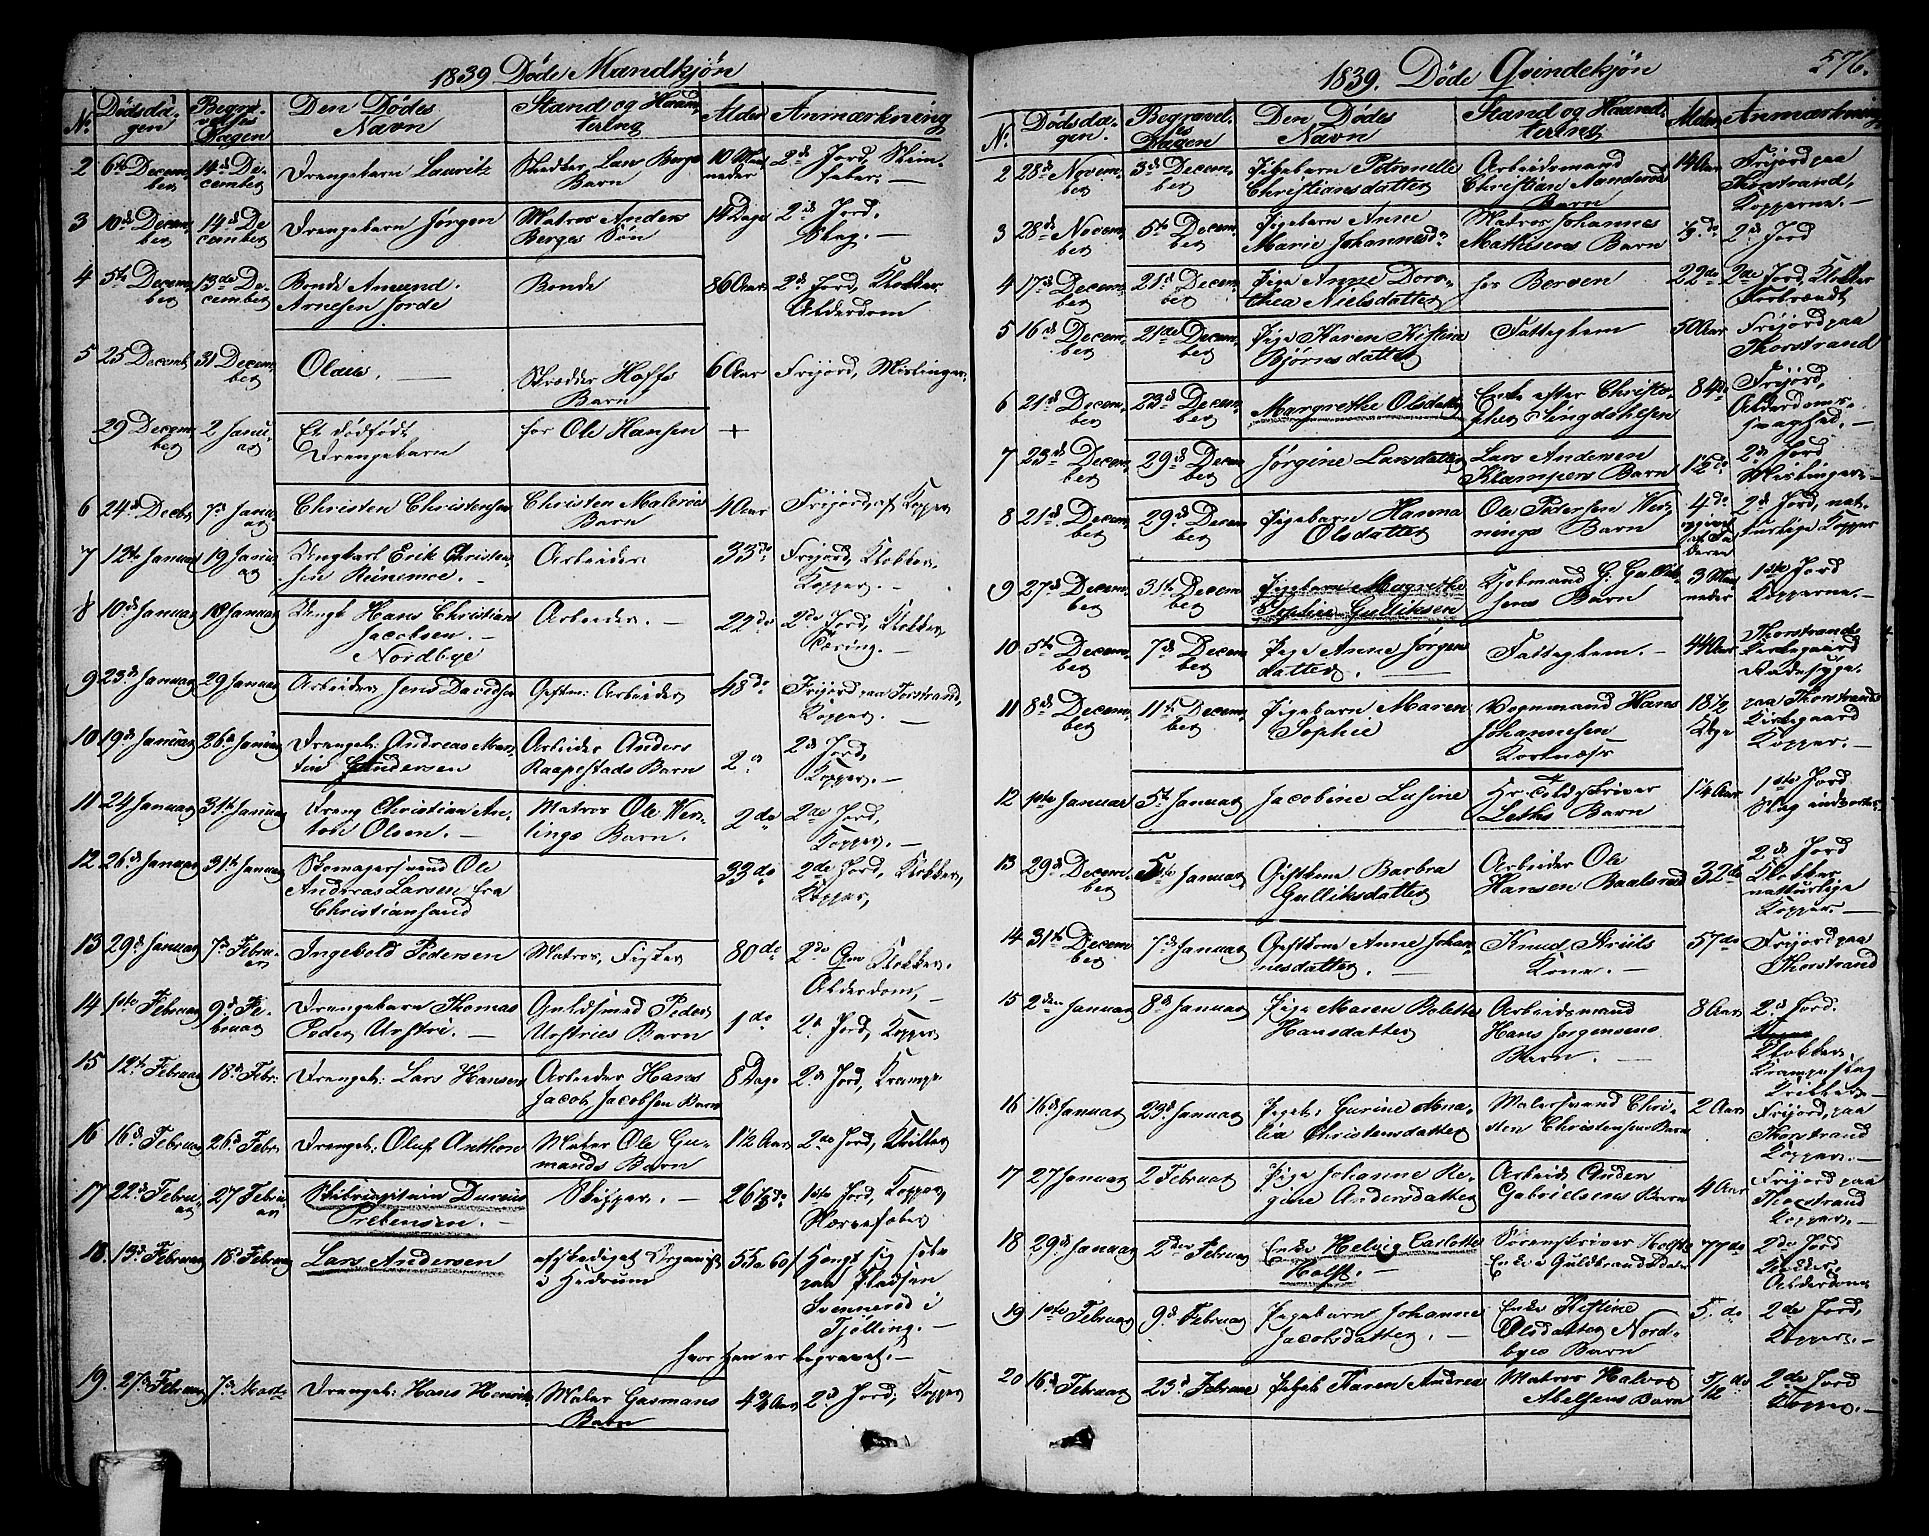 1839 Døde Mandkjøn
No. Dødsdagen Begravelses Dagen Den Dødes Navn Stand og Haandtering Alder Anmærkning
2 6te December 14de December Drengebarn Lauritz Barn 10 Maaneder 2d Jord,
3 10de December 14d December Drengebarn Jørgen Matros Anders Berges Søn 14 Dage 2d Jord. Slag. —
4 5te December 13de December Bonde Amund Arnesen Jorde Bonde 86 Aar 2d Jord, Klokker Alderdom
5 25 Decemb 31 December Olaus. — Skrædder Hoffs Barn 6 Aar Frijord, Mislinger.
29 December 2 Januar Et dødfødt Drengebarn for Ole Hansen +
6 24d Decbr 7d Januar Christen Christensen Christen Maleries Barn 4 Aar Frijord, af Kopper
7 12te Januar 19 Januar Ungkarl Erik Christensen — Arbeider 33 do Frijord, Klokker. Kopper. —
8 10d Januar 18 Januar Ungk Hans Christian Jacobsen. — Nordbye Arbeider. — 22 do 2de Jord, Klokker Tæring. —
9 23d Januar 29 Januar Arbeider Jens Davidsen Giftm: Arbeider 48 do Frijord paa Torstrand, Kopper. —
10 19d Januar 26d Januar Drengeb: Andreas Martin Andersen Arbeider Anders Raapestads Barn 2 " 2d Jord, Kopper. —
11 24 Januar 31te Januar Dreng Christian Anton Olsen. — Matros Ole Barn. 2 do 2de Jord, Kopper. —
12 26d Januar 31te Januar Skomagersvend Ole Andreas Larsen fra Christiansand 33 do 2de Jord, Klokker, Kopper,
13 29d Januar 7d Februar Ingebold Pedersen Matros, Fisker 80 do 2de Klokker. Alderdom, —
14 1ste Februar 9d Februar Drengebarn Thomas Peder — Guldsmed Peder Barn 1 do 2d Jord, Kopper
15 12te Februar 18d Febr. Drengeb: Lars Hansen Arbeider Hans Jacob Jacobsen Barn 8 Dage 2d Jord, Krampe
16 16d Februar 26d Febr. Drengeb: Oluf Anthon Maler Ole Gumands Barn 1½ Aar 2de Jord,
17 22d Februar 27 Februar Prebensen. — Skipper. — 26 1ste Jord, Kopper,
18. 13d Februar 18d Februar Lars Andersen afskediget Organist i Hedrum 55 a 60 Hængt sig selv paa Pladsen Svennerød i Tjølling. —
hvor han er begravet. —
19. 27d Februar 7d Marts Drengeb: Hans Henrik Maler Gasmans Barn 4¾ Aar 2d Jord, Kopper
1839. Døde Qvindekjøn 576.
No. Dødsdagen. Begravelses Dagen Den Dødes Navn Stand og Haandtering Alder Anmærkning
2 28d November 3d December Pigebarn Petronelle Christiansdatter Arbeidsmand Christian Barn 14 Aar Frijord paa Thorstrand, Kopperne. —
3 28d November 5te December Pigebarn Anne Marie Johannesd. Matros Johannes Mathisens Barn 3 do 2d Jord
4 17d December 21d December Pige Anne Dorothea Nielsdatter hos Bergen 22 do 2de Jord, Klokker Forbrændt
5 16d December 21de December Pige Karen Kistine Bjørnsdatter Fattighem 50 Aar Frijord paa Thorstrand
6 21d December 23d December Margrethe Olsdatter Enke efter Christopher 84 do Frijord, Alderdoms-svaghed. —
7 23d December 29d December Jørgine Larsdatter Lars Andersen Klampers Barn 1½ do 2d Jord Mislinger. —
8 21d December 29d December Pigebarn Hanna Olsdatter Ole Pedersen Barn 4 do 2d Jord, naturlige Kopper
9 27d December 31te December Pigebarn Magrethe Sophie Gulliksen Kjøbmand G: Gulliksens Barn 3 Maaneder 1ste Jord Kopperne. —
10 5te December 7d December Pige Anne Jørgensdatter. — Fattighem. — 44 Aar Thorstrands Kirkegaard Radesyge. —
11 8d December 11te December Pigebarn Maren Sophie Vognmand Hans Johannesen 18½ Uge paa Thorstrands Kirkegaard Kopper. —
12 1ste Januar 5te Januar Jacobine Lusine Hr Toldskriver Leths Barn 1¼ Aar 1ste Jord Slag
13 29d December 5te Januar Giftkone Barbra Gulliksdatter Arbeider Ole Hansen 32 do 2d Jord Klokker naturlige Kopper. —
14 31te December 7d Januar Giftkone Anne Johannesdatter. — Knud Kone. — 57 do Frijord paa Thorstrand
15 2den Januar 8d Januar Pige Maren Bolette Hansdatter Arbeidsmand Hans Jørgensens Barn. — 8 Aar 2d Jord. Klokker, Krampeslag
16 16d Januar 23d Januar Pigeb: Gurine Christensdatter Malersvend Christen Christensens Barn 2 Aar Frijord, paa Thorstrand Kopper. —
17 27 Januar 2 Februar Pige Johanne Regine Andersdatter Arbeid: Anders Gabrielsens Barn 4 Aar Frijord paa Thorstrand Kopper. —
18 29d Januar 2den Februar Enke Helvig Carlotte Holst. — Sorenskriver Holsts Enke i Guldbrandsdalen 77 do 2de Jord Klokker, Alderdom
19 1ste Februar 9d Februar Pigebarn Johanne Jacobsdatter. — Enke Kistine Olsdatter Nordbyes Barn 5. do 2de Jord, Kopper. —
20 16d Februar 23d Februar Pigeb Karen Andrea Matros Halvor Abelsens Barn 5/12 do 2de Jord Kopper. —